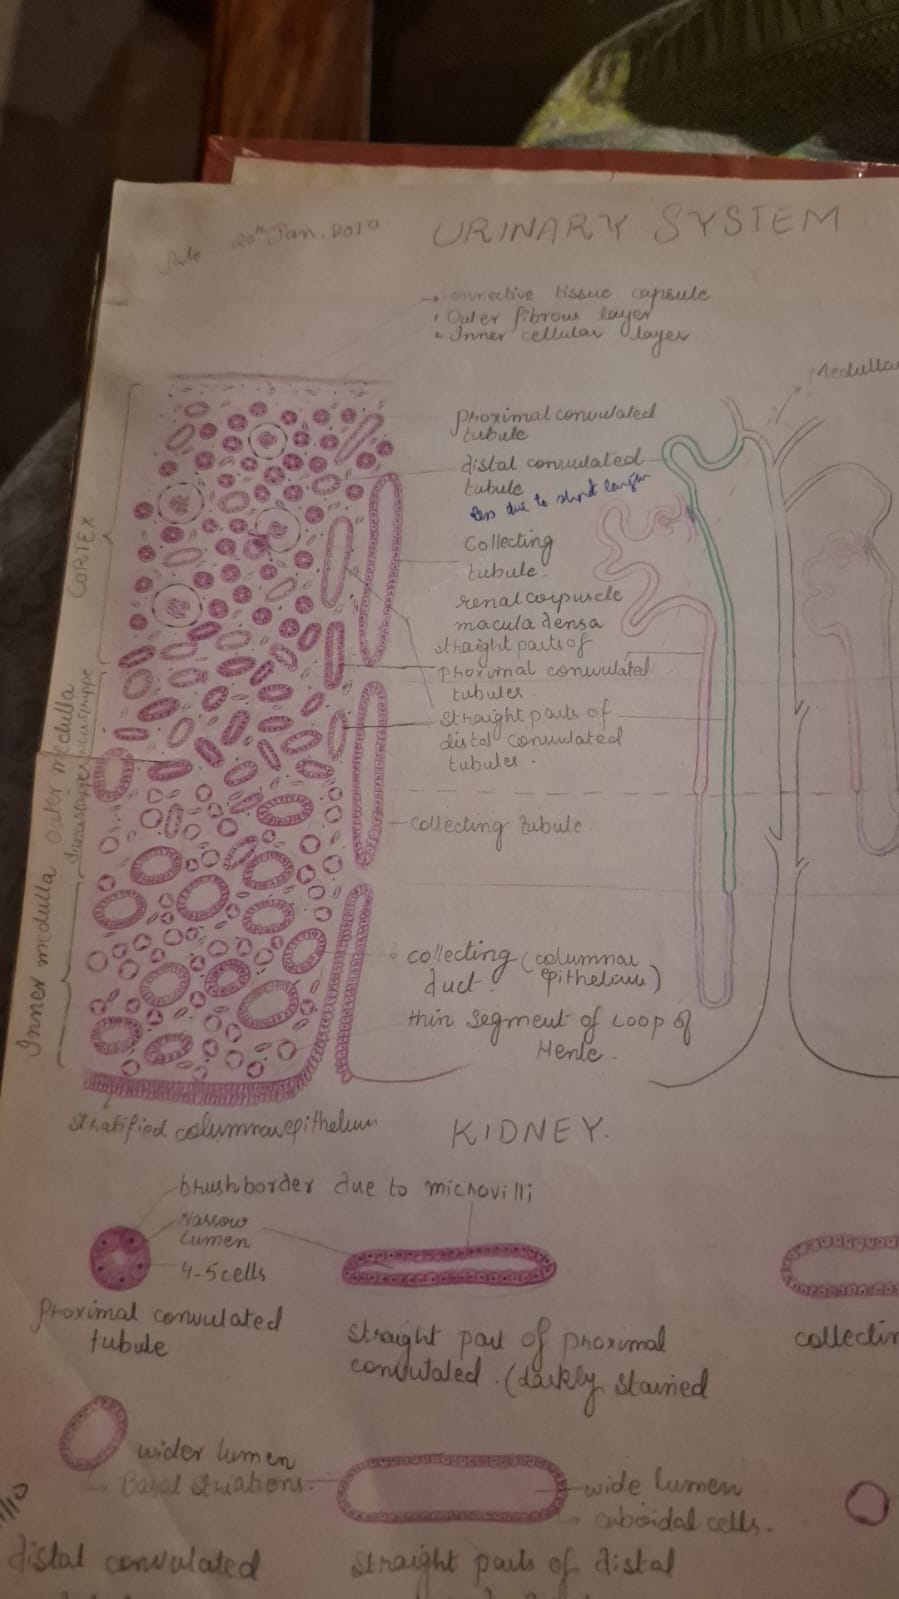 Date 20th Jan. 2010
URINARY SYSTEM
→ connective tissue capsule
Outer fibrous layer
Inner cellular layer
Medulla
proximal convulated
tubule
distal convulated
tubule
less due to short
Collecting
tubule.
renal corpuscle
macula densa
straight parts of
proximal convulated
tubules.
straight parts of
distal convulated
tubules.
collecting tubule.
collecting (columnar
duct. epithelium)
thin segment of Loop of
Henle.
CORTEX
Outer medulla
Inner medulla
stratified columnar epithelium
KIDNEY.
brushborder due to microvilli
Narrow
lumen
4-5 cells
Proximal convulated
tubule
straight part of proximal
convulated. (darkly stained
collectin
wider lumen
Basal striations
wide lumen
cuboidal cells.
distal convulated
straight parts of distal